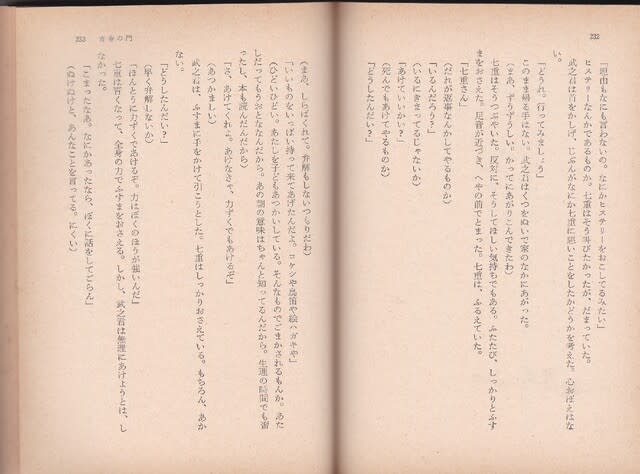 232
「理由もなにも言わないの。なにかヒステリーをおこしてるみたい」
ヒステリーなんかであるものか。七重はそう叫びたかったが、だまっていた。
武之君は首をかしげ、じぶんがなにか七重に悪いことをしたかどうかを考えた。心おぼえはな
い。
「どうれ。行ってみましょう」
このまま帰る手はない。武之君はくつをぬいで家のなかにあがった。
(まあ、ずうずうしい。かってにあがりこんできたわ)
七重はそうつぶやいた。反対に、そうしてほしい気持ちでもある。ふたたび、しっかりとふす
まをおさえた。足音が近づき、へやの前でとまった。七重は、ふるえていた。
「七重さん」
(だれが返事なんかしてやるものか)
「いるんだろう?」
(いるにきまってるじゃないか)
「あけていいかい?」
(死んでもあけてやるものか)
「どうしたんだい?」
233 青春の門
(まあ、しらばくれて。弁解もしないつもりだわ)
「いいものをいっぱい持って来てあげたんだよ。コケシや鳥笛や絵ハガキや」
(ひどいひどい。あたしを子どもあつかいしている。そんなものでごまかされるもんか。あた
しだってもうおとななんだから。あの詞の意味はちゃんと知ってるんだから。生理の時間でも習
ったし、本も読んだんだから)
「さ、あけてくれよ。あけなきゃ、力ずくでもあけるぞ」
(あつかましい)
武之君は、ふすまに手をかけて引こうとした。七重はしっかりおさえている。もちろん、あか
ない。
「どうしたんだい?」
(早く弁解しないか)
「ほんとうに力ずくであけるぞ。力はぼくのほうが強いんだ」
七重は青くなって、全身の力でふすまをおさえる。しかし、武之君は無理にあけようとは、し
なかった。
「こまったなあ。なにかあったなら、ぼくに話をしてごらん」
(ぬけぬけと、あんなことを言ってる。にくい)